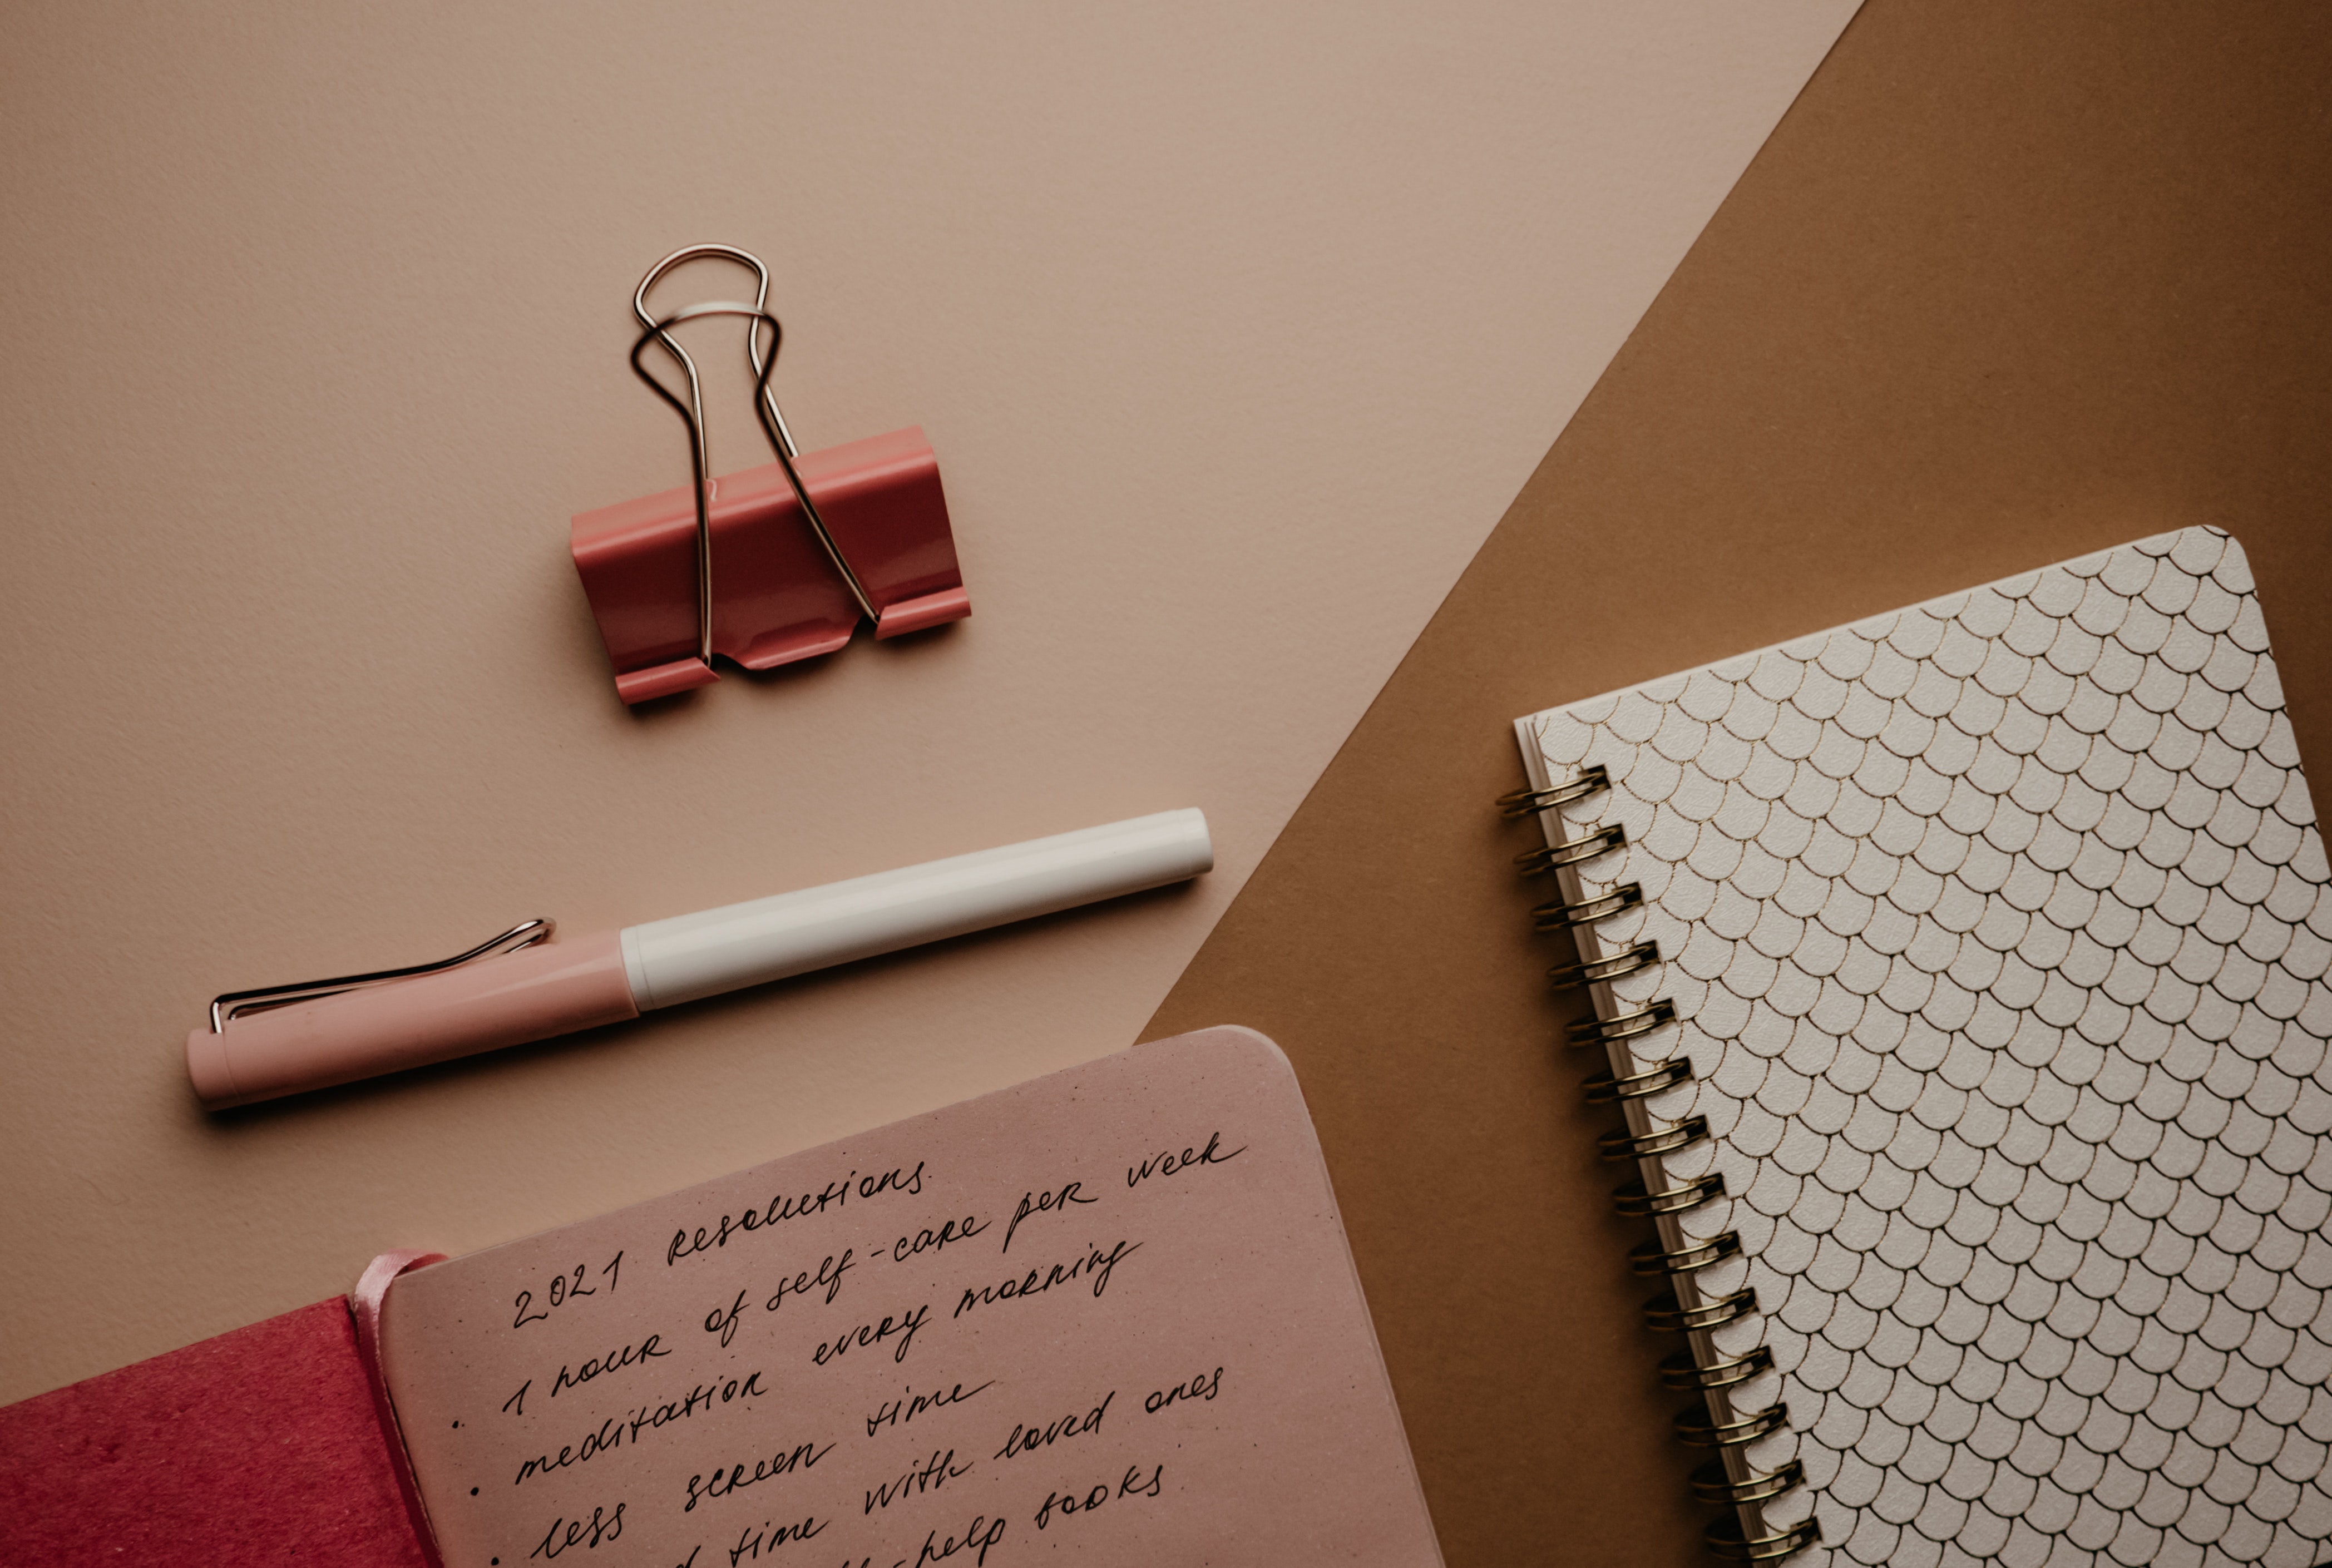 2021 resolutions
· 1 hour of self-care per week
· meditation every morning
· less screen time
time with loved ones
-help books